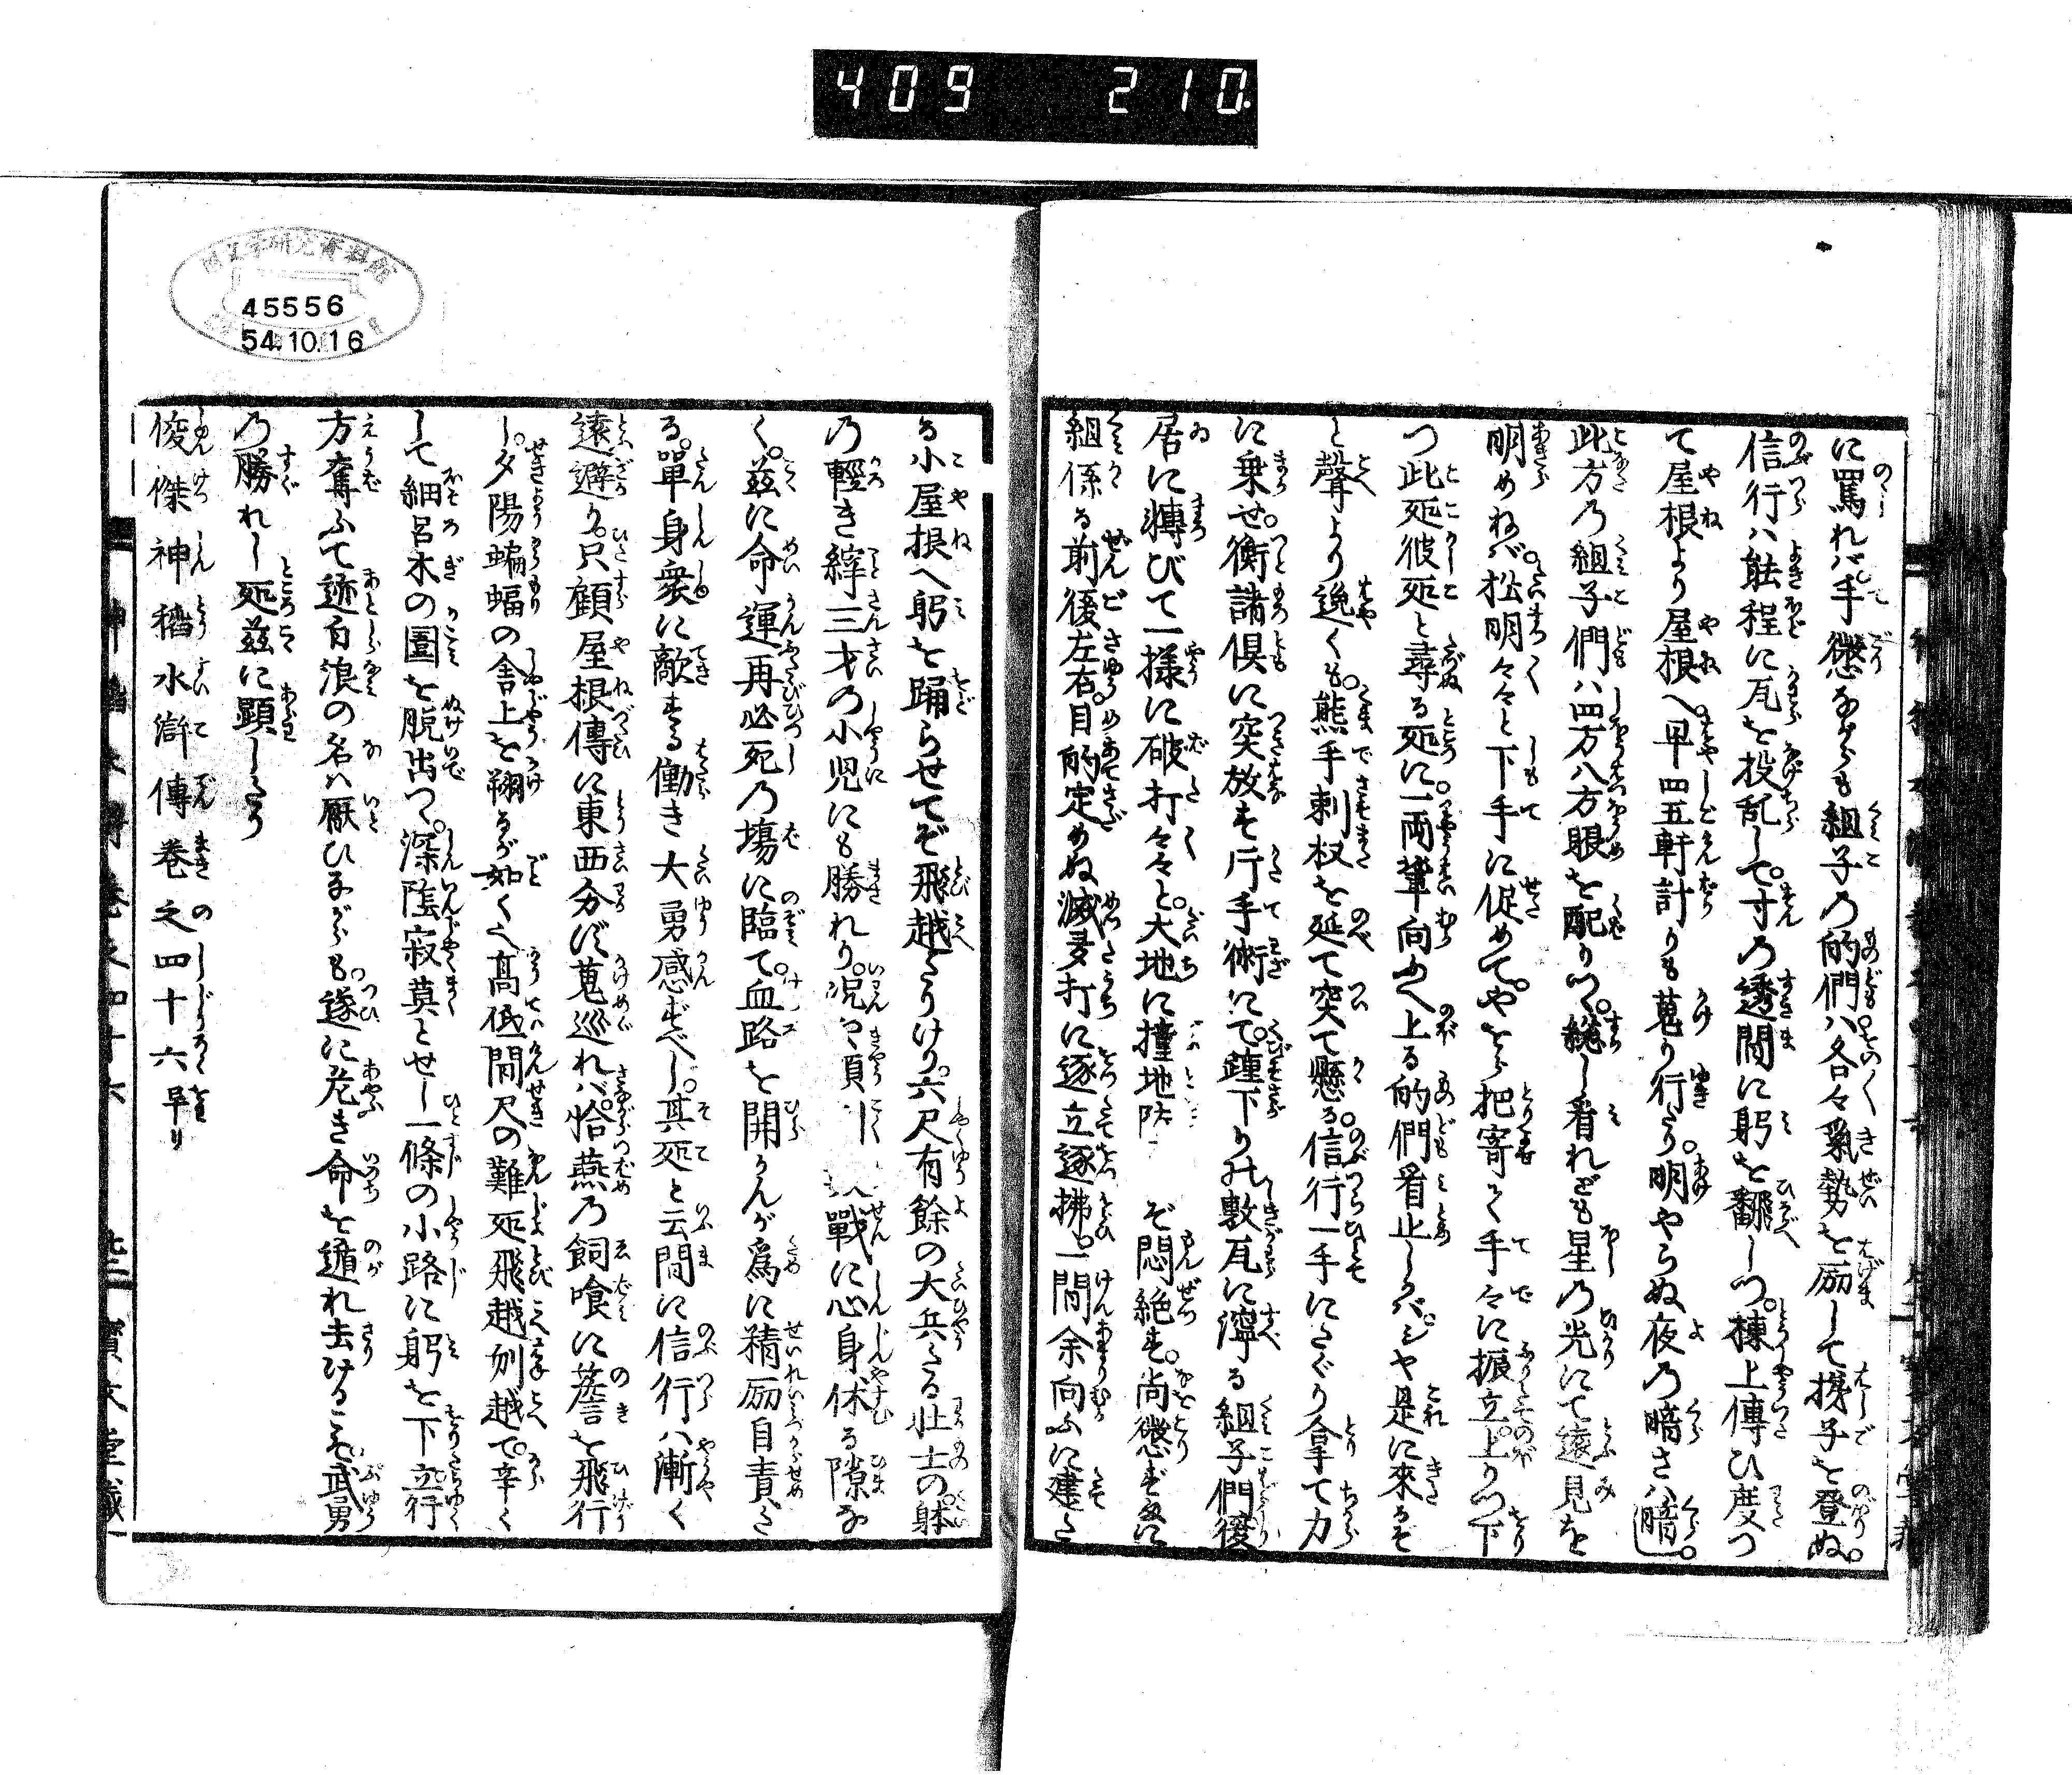 409 210.
に罵れバ手懲ながらも組子の的們ハ各々気勢を励して梯子を登ぬ。
信行ハ能程に瓦を投乱して。寸の透間に躬を翻しつ。棟上傳ひ度つ
て屋根より屋根へ。早四五軒計りも蒐り行たり。明やらぬ夜の暗さハ暗し。
此方の組子們ハ四方八方眼を配りつゝ。看れども星の光にて遠見を
明めねバ。松明々々と下手に促めて。やをら把寄て手々に振立上りつ下
つ此処彼処と尋る処に。一両輩向へ上る的們看止しかバ。シヤ是に來るぞ
と聲より逸くも。熊手刺杈を延て突て懸る。信行一手にたぐり拿て力
に乗せ。衡諸倶に突放す片手術にて。踵下りの敷瓦に濘る組子們後
居に轉びて一様に破打々々と。大地に撞地 ぞ悶絶す。尚懲ずまに
組係る前後左右。目的定めぬ滅多打に逐立逐拂ひ一間余向ふに建た
る小屋根へ躬を踊らせてぞ飛越たりけり。六尺有餘の大兵たる壮士の。躰
の輕き縡三才の小児にも勝れり。況や頃刻 戰に心身休る隙な
く。茲に命運再必死の塲に臨て。血路を開かんが為に精励自責た
る。單身衆に敵する働き大勇感ずべし。其処と云間に信行ハ漸く
遠避り。只顧屋根傳に東西分ず蒐巡れバ。恰燕の飼喰に簷を飛行
し。夕陽蝙蝠の舎上を翔るが如くへ高低間尺の難処飛越刎越て。辛く
して細呂木の圍を脱出つ。深陰寂莫とせし一條の小路に躬を下立行
方奪ふて迹白浪の名ハ厭ひながらも。遂に危き命を遁れ去けるこそ。武勇
の勝れし処茲に顕したり
俊傑神稲水滸傳巻之四十六早り
45556
54.10.16